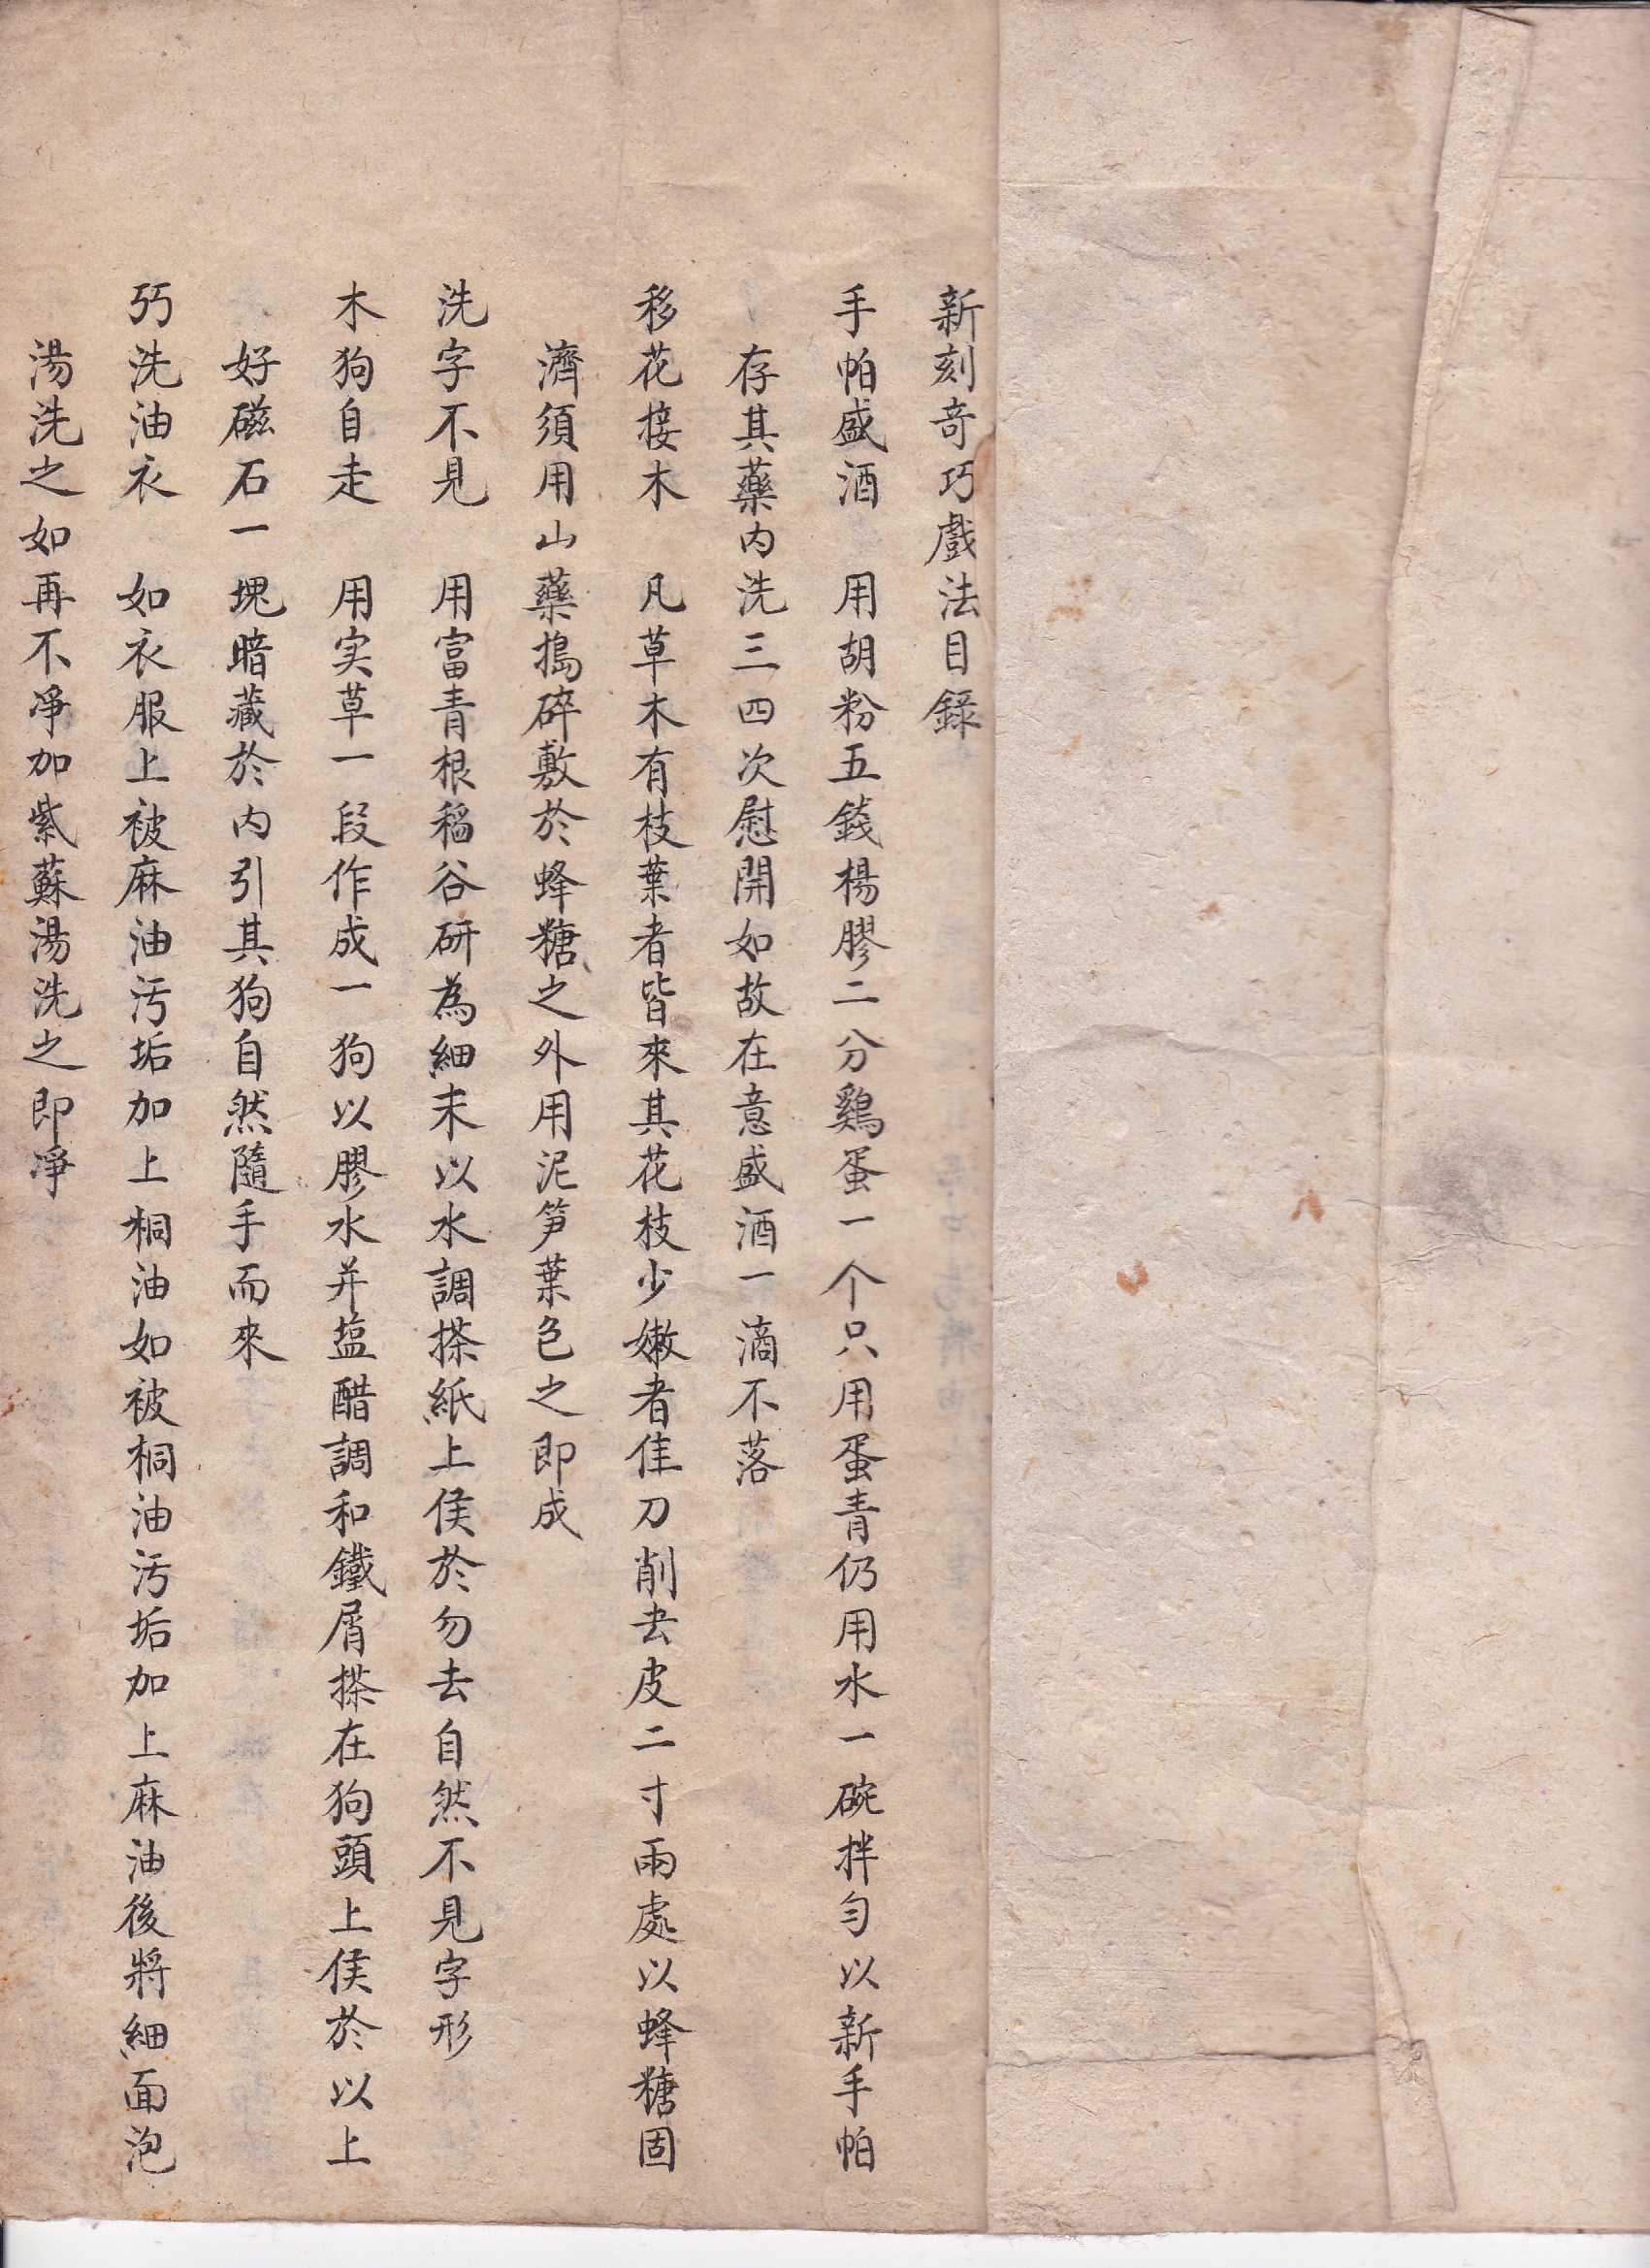 新刻竒巧戲法目録
手帕盛酒　用胡粉五錢楊膠二分鷄蛋一个只用蛋青仍用水一碗拌勻以新手帕
存其藥内洗三四次慰開如故在意盛酒一滴不落
移花接木　凡草木有枝葉者皆來其花枝少嫩者佳刀削去皮二寸兩處以蜂糖固
濟須用山藥搗碎敷於蜂糖之外用泥笋葉色之即成
洗字不見　用富青根稻谷研為細末以水調搽紙上侯於勿去自然不見字形
木狗自走　用实草一段作成一狗以膠水并塩醋調和鐵屑搽在狗頭上侯於以上
好磁石一塊暗藏於内引其狗自然隨手而來
巧洗油衣　如衣服上被麻油污垢加上桐油如被桐油污垢加上麻油後將細面泡
湯洗之如再不凈加紫蘇湯洗之即凈